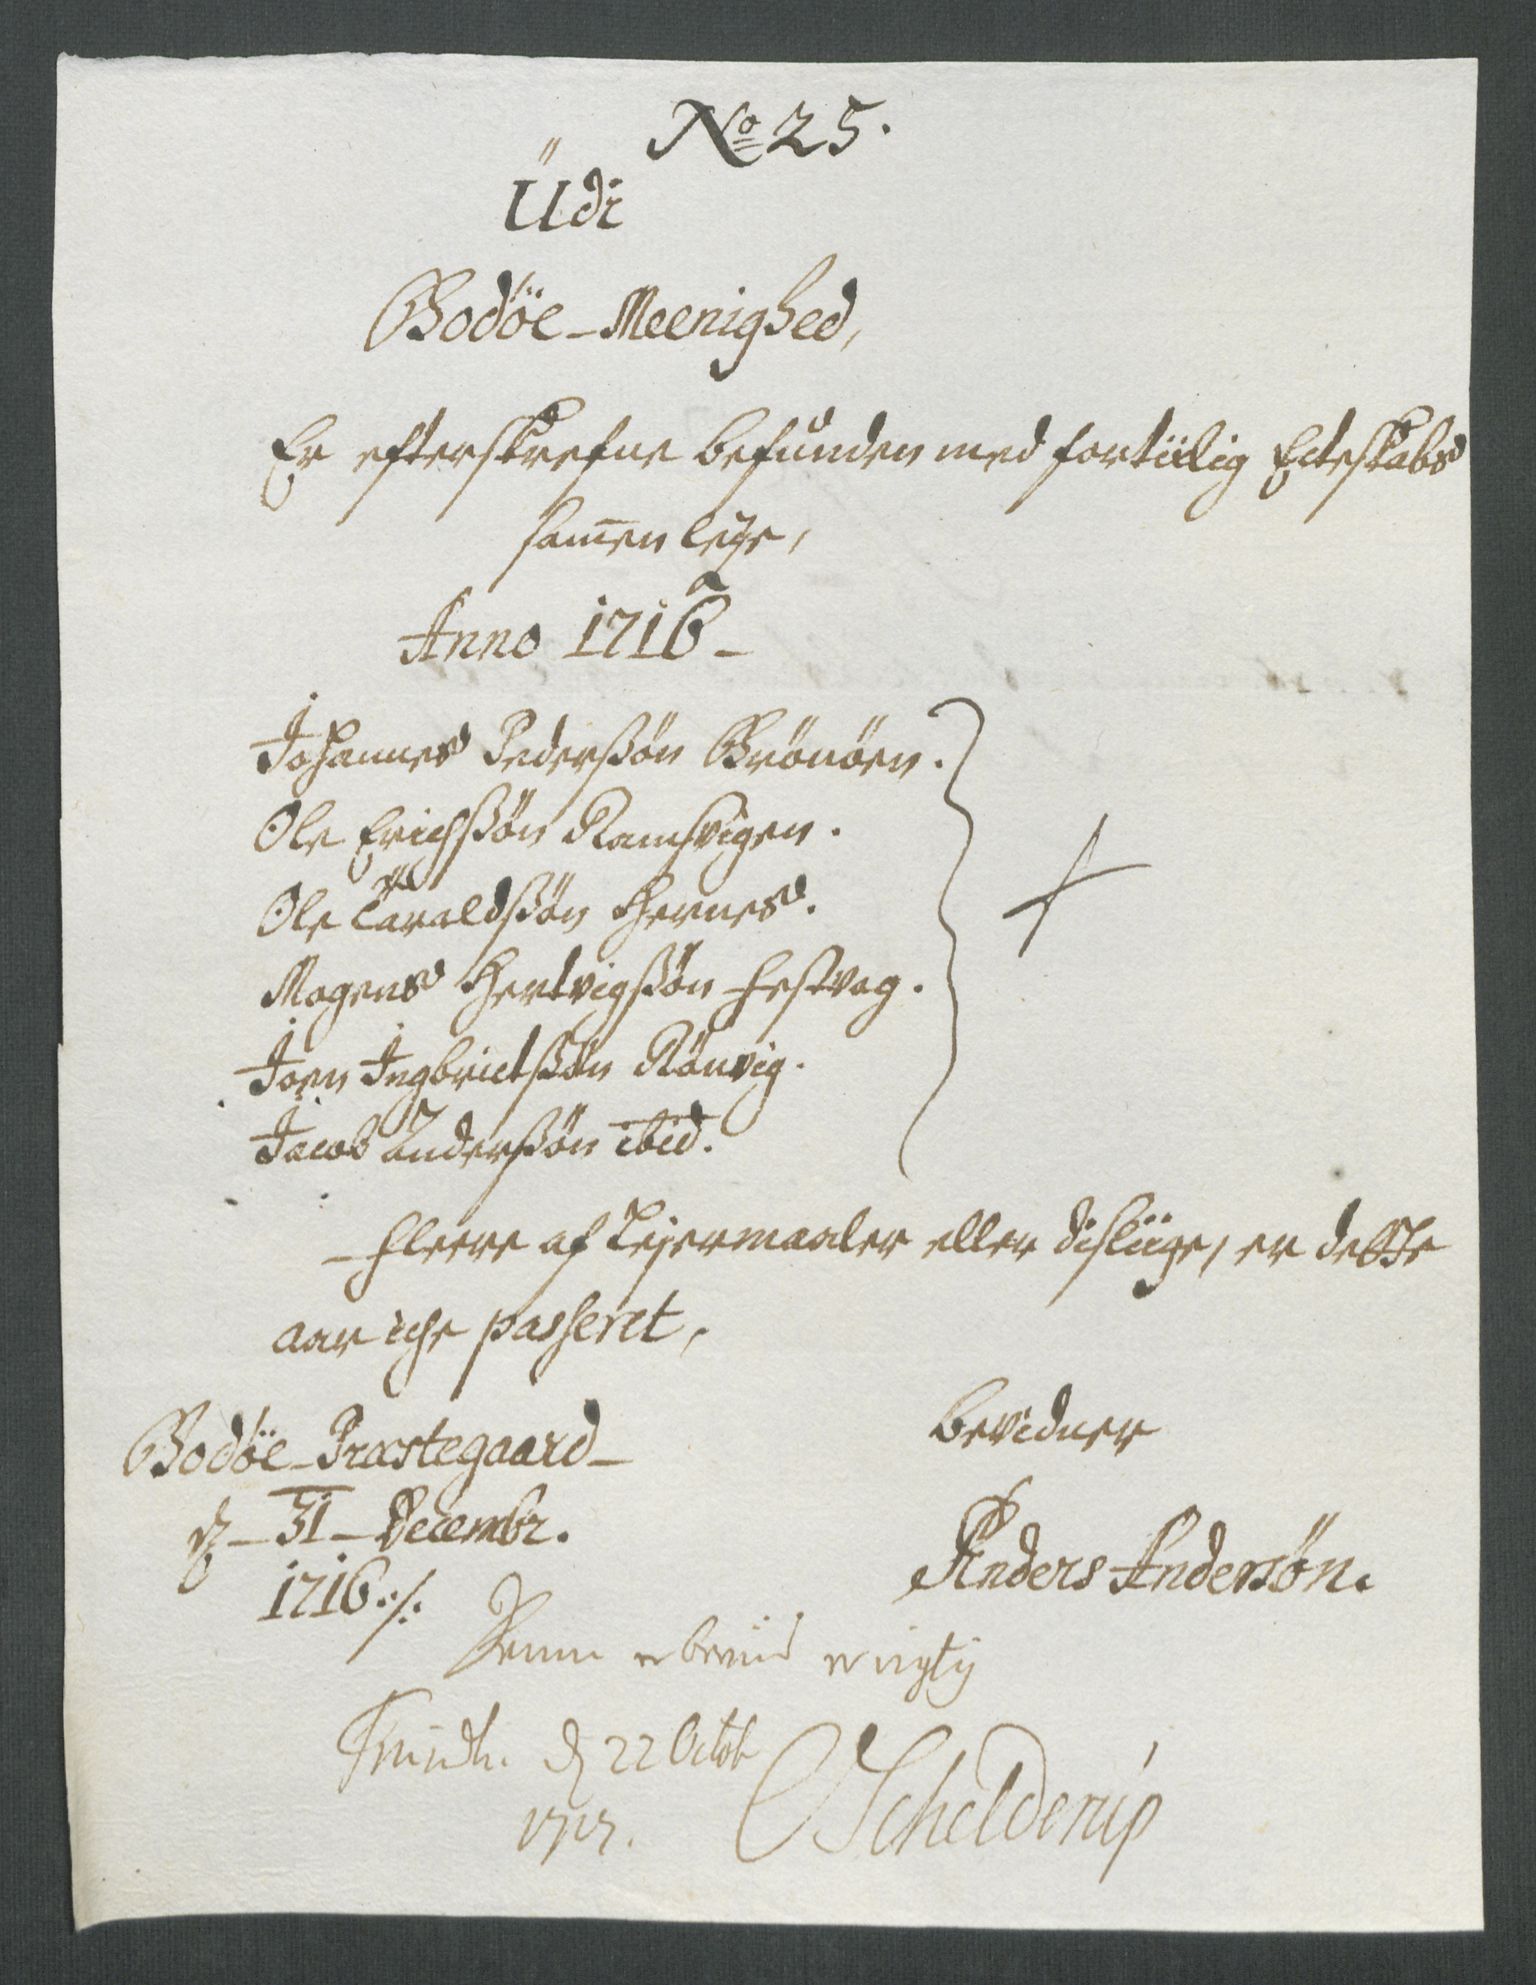 No 25.
Üdi
Bodöe-Meenighed,
Er efterskrefne befunden med fortiilig Ecteskabs
sam̄en leje,
Anno 1716-
Johannes Pederssön Brönöen.
Ole Erichssön Ramsvigen.
Ole Taraldssön Hernes.
Mogens Hertvigssön Festvog.
Joen Ingbrictssön Rönvig.
Jacob Anderssön ibid.
Fleere af Lejermaaler eller disliige, er dette
aar iche passeret,
Bodöe-Præstegaard-
d - 31 - Decembr.
1716./.
bevidner
Anders Andersön.
er rigtig
Trundh. d 22 Octob
1717.
Schelderup